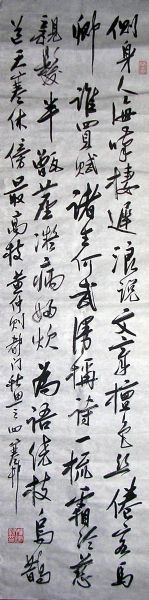 側身人海嘆棲遲浪說文章擅色絲倦客馬
卿誰買賦諸生何武漫稱詩一梳霜冷慈
親髮半甑塵凝病婦炊為語繞枝烏鵲
道天寒休傍最高枝黄仲则都門秋思之四